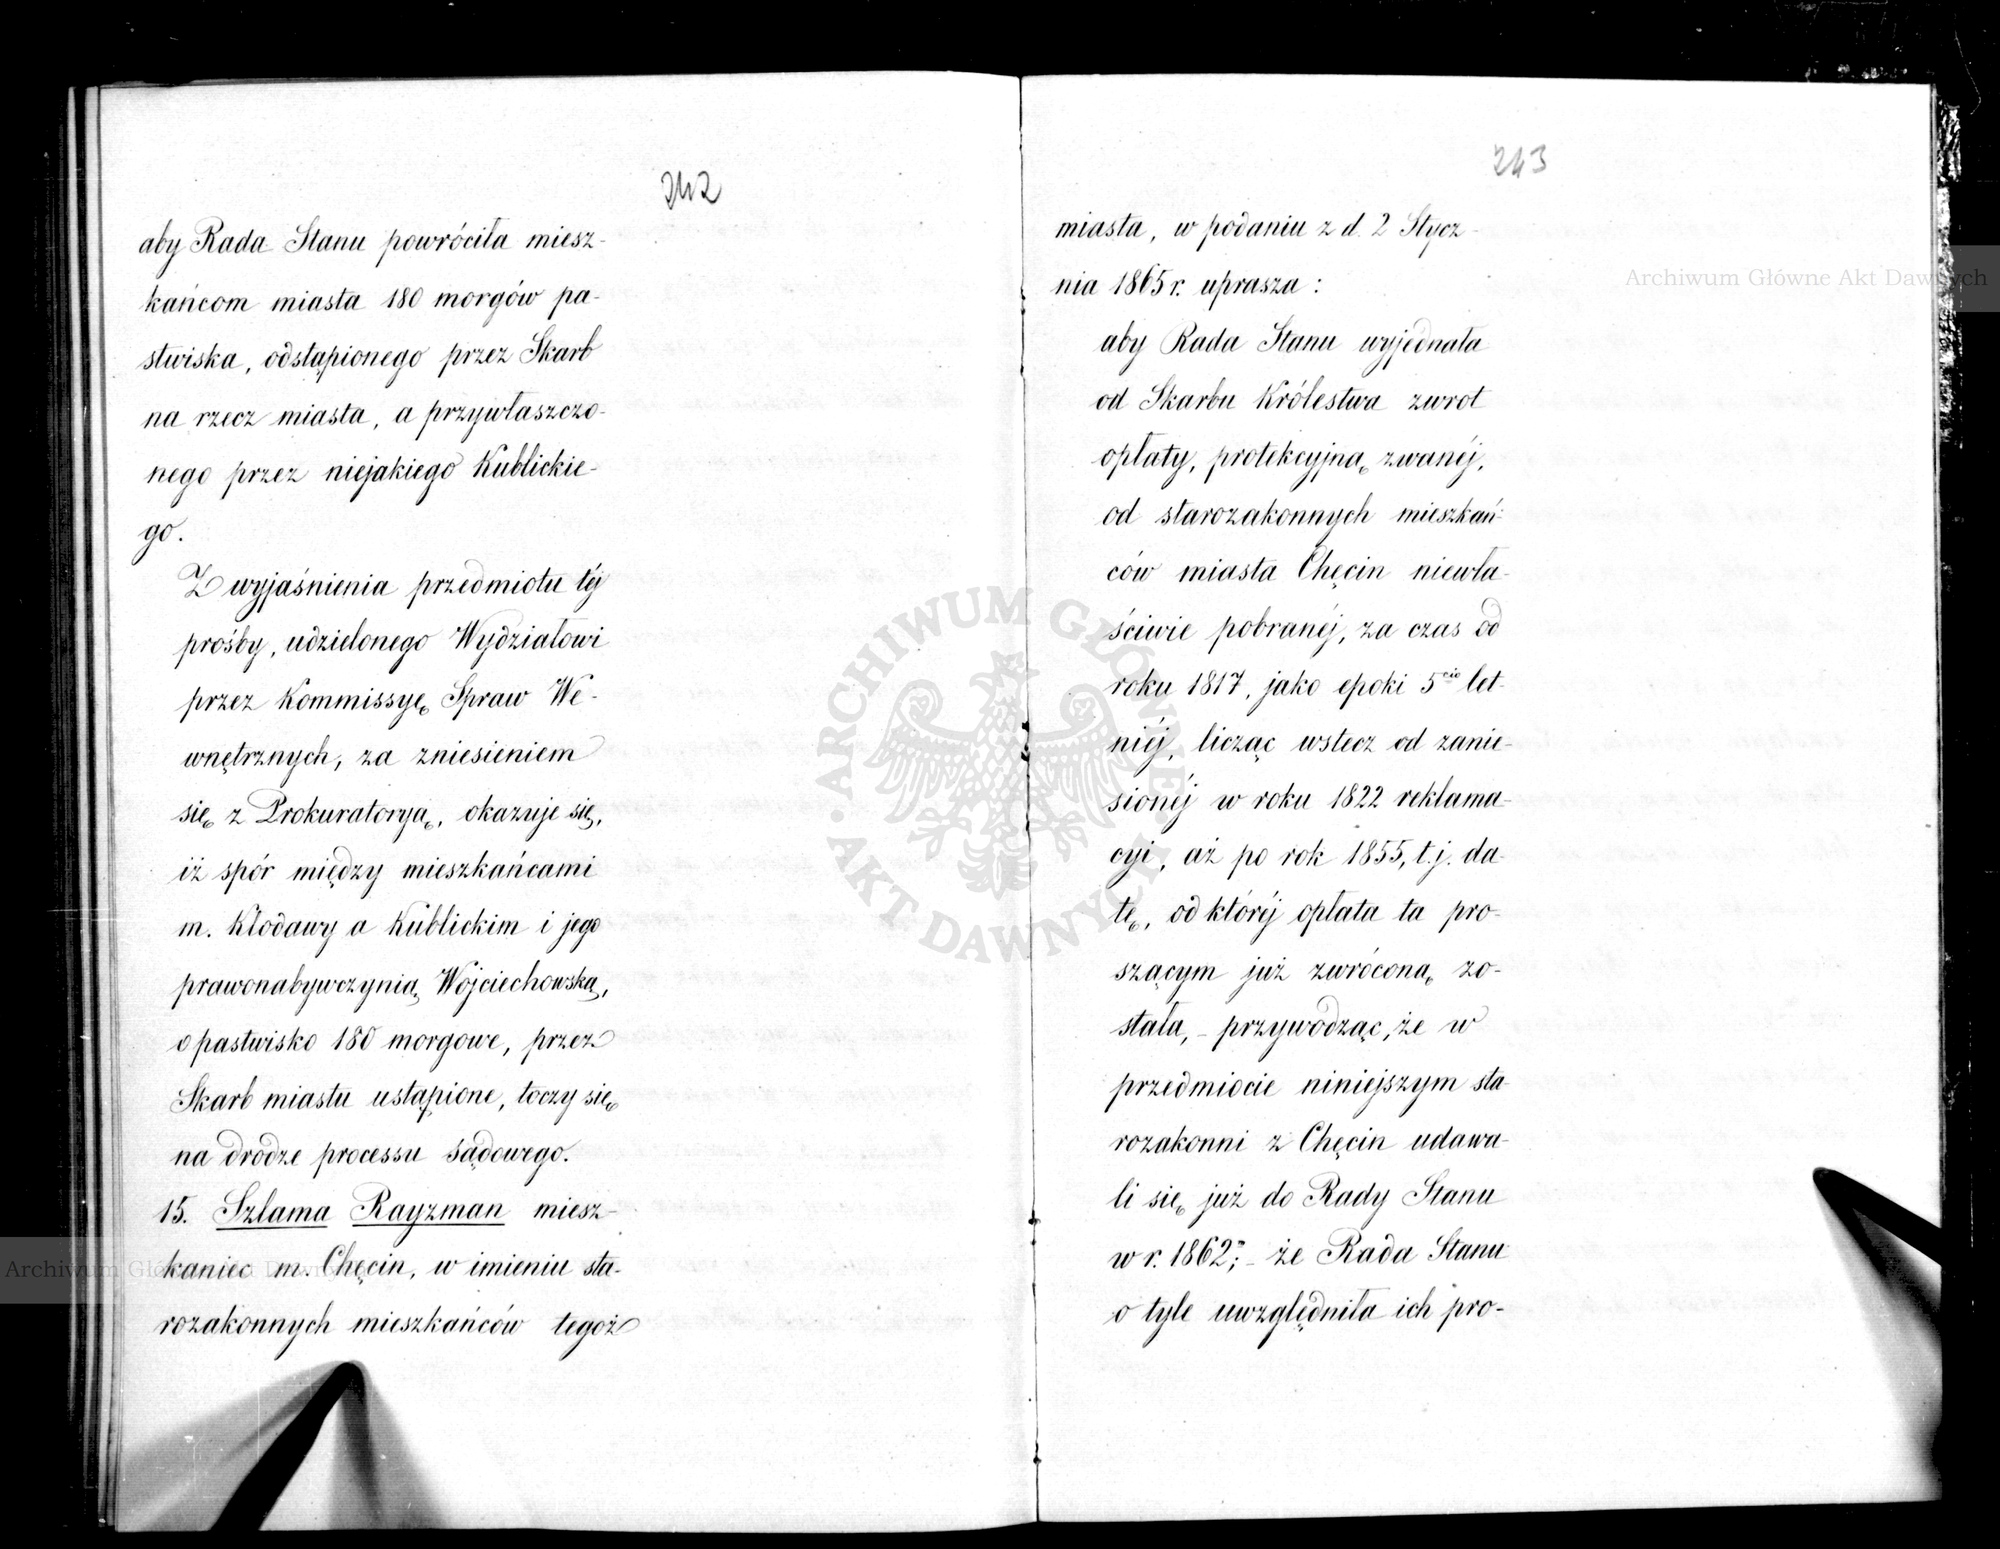 242
aby Rada Stanu powróciła miesz-
kańcom miasta 180 morgów pa-
stwiska, odstąpionego przez Skarb
na rzecz miasta, a przywłaszczo-
nego przez niejakiego Kublickie-
go.
Z wyjaśnienia przedmiotu téj
prośby, udzielonego Wydziałowi
przez Kommissyę Spraw We-
wnętrznych, za zniesieniem
się z Prokuratoryą, okazuje się,
iż spór między mieszkańcami
m. Kłodawy a Kublickim i jego
prawonabywczynią Wojciechowską,
o pastwisko 180 morgowe, przez
Skarb miastu ustąpione, toczy się
na drodze processu sądowego.
15. Szlama Rayzman miesz-
kaniec m. Chęcin, w imieniu sta-
rozakonnych mieszkańców tegoż
243
miasta, w podaniu z d. 2 Stycz-
nia 1865 r. uprasza:
aby Rada Stanu wyjednała
od Skarbu Królestwa zwrot
opłaty, protekcyjną zwanéj,
od starozakonnych mieszkań-
ców miasta Chęcin niewła-
ściwie pobranéj, za czas od
roku 1817, jako epoki 5cio let-
niéj, licząc wstecz od zanie-
sionéj w roku 1822 reklama-
cyi, aż po rok 1855, t.j. da-
tę, od któréj opłata ta pro-
szącym już zwróconą zo-
stała, - przywodząc, że w
przedmiocie niniejszym sta-
rozakonni z Chęcin udawa-
li się już do Rady Stanu
w r. 1862; - że Rada Stanu
o tyle uwzględniła ich pro-
Archiwum Główne Akt Dawnych
Archiwum Główne Akt Dawnych
ARCHIWUM GŁÓWNE · AKT DAWNYCH ·